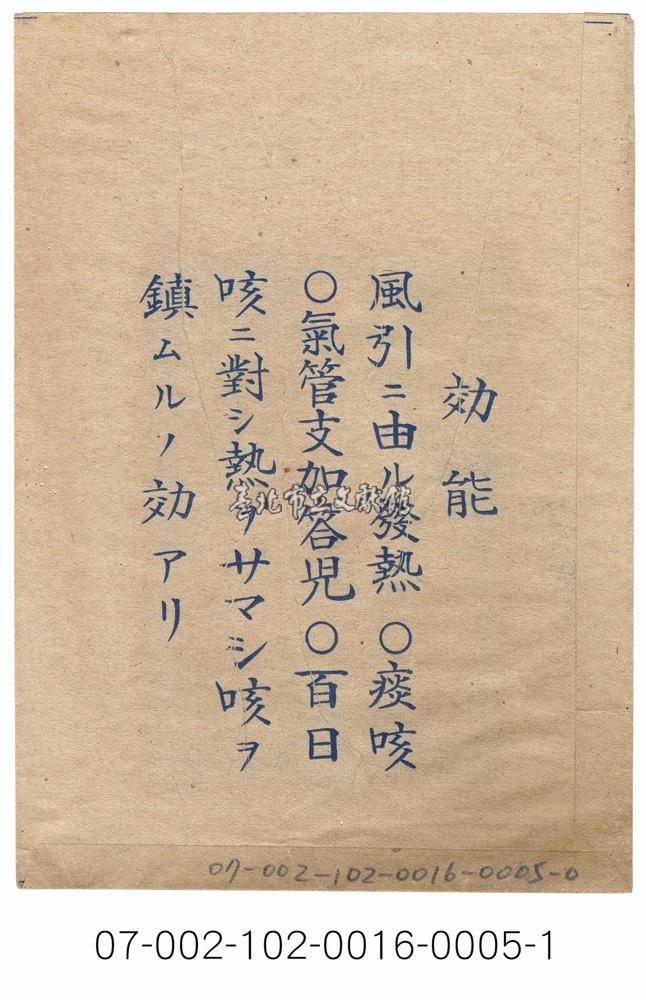 効能
風引ニ由ル發熱 ○痰咳
○氣管支加答児○百日
咳ニ對シ熱ヲサマシ咳ヲ
鎮ムルノ効アリ
臺北市立文獻館
07-002-102-0016-0005-0
07-002-102-0016-0005-1